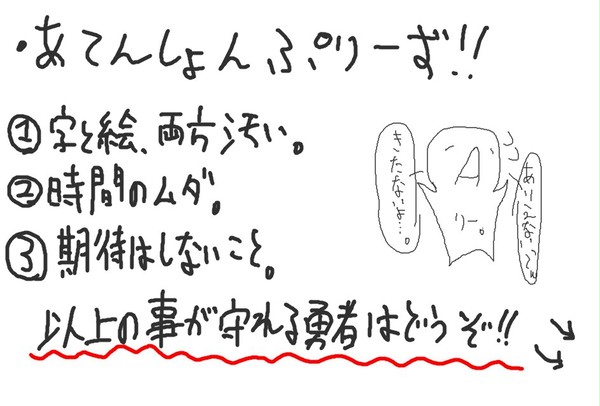 ・あてんしょんぷりーず!!
①字と絵、両方汚い。
②時間のムダ。
③期待はしないこと。
きたないよ…。
A
りー。
以上の事が守れる勇者はどうぞ!!